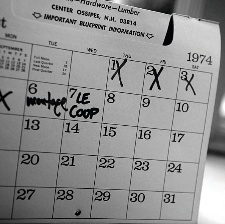 -Hardware-Lumber
CENTER OSSIPEE, N.H. 03814
IMPORTANT BLUEPRINT INFORMATION
st
1974
SEPTEMBER
TUE
WED
THU
FRI
SAT
1 2 3
6 7 8 9 10
montage LE COOP
13 14 15 16 17
20 21 22 23 24
27 28 29 30 31